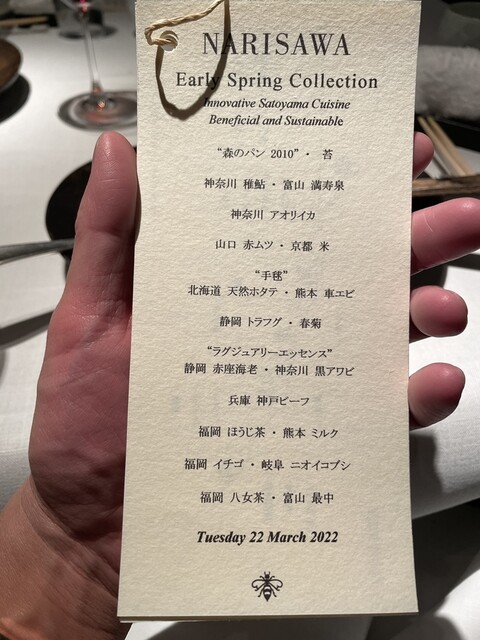 NARISAWA
Early Spring Collection
Innovative Satoyama Cuisine
Beneficial and Sustainable
“森のパン 2010”・ 苔
神奈川 稚鮎・富山 満寿泉
神奈川 アオリイカ
山口 赤ムツ・京都 米
“手毬”
北海道 天然ホタテ・熊本 車エビ
静岡 トラフグ・春菊
“ラグジュアリーエッセンス”
静岡 赤座海老・神奈川 黒アワビ
兵庫 神戸ビーフ
福岡 ほうじ茶・熊本 ミルク
福岡 イチゴ・岐阜 ニオイコブシ
福岡 八女茶・富山 最中
Tuesday 22 March 2022